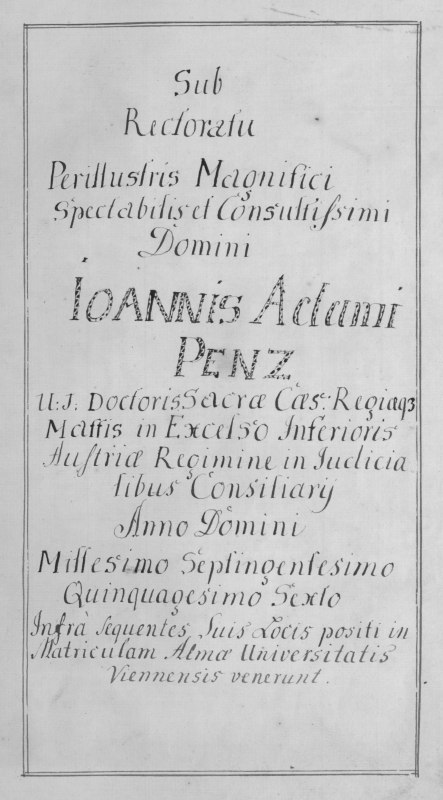 Sub
Rectoratu
Perillustris Magnifici
Spectabilis et Consultiſsimi
Domini
IOANNIS Adami
PENZ
U: J: Doctoris Sacræ Cæs: Regiaqȝ
Mattis in Excelso Inferioris
Auſtriæ Regimine in Judicia
libus Consiliarÿ
Anno Domini
Millesimo Septingentesimo
Quinquagesimo Sexto
Infrà Sequentes Suis Locis positi in
Matriculam Almæ Universitatis
Viennensis venerunt.